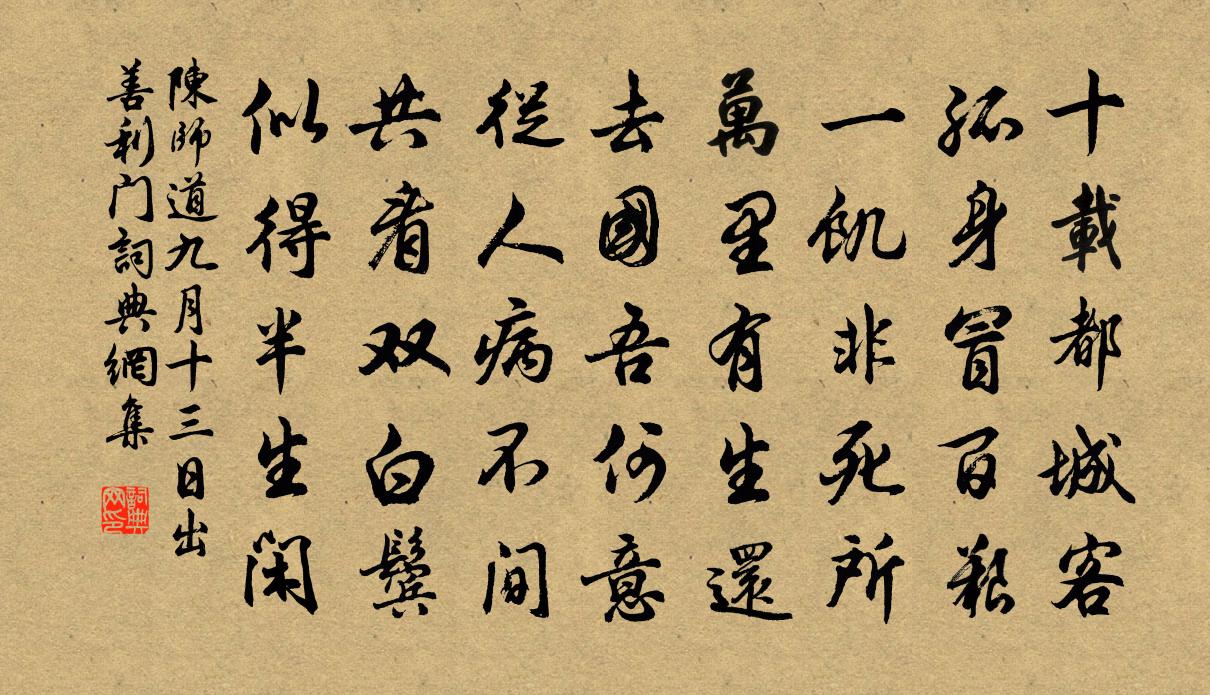 十載都城客
孤身冒百艱
一飢非死所
萬里有生還
去國吾何意
從人病不間
共看双白鬢
似得半生閑
陳師道九月十三日出
善利門詞典網集
詞典
网印